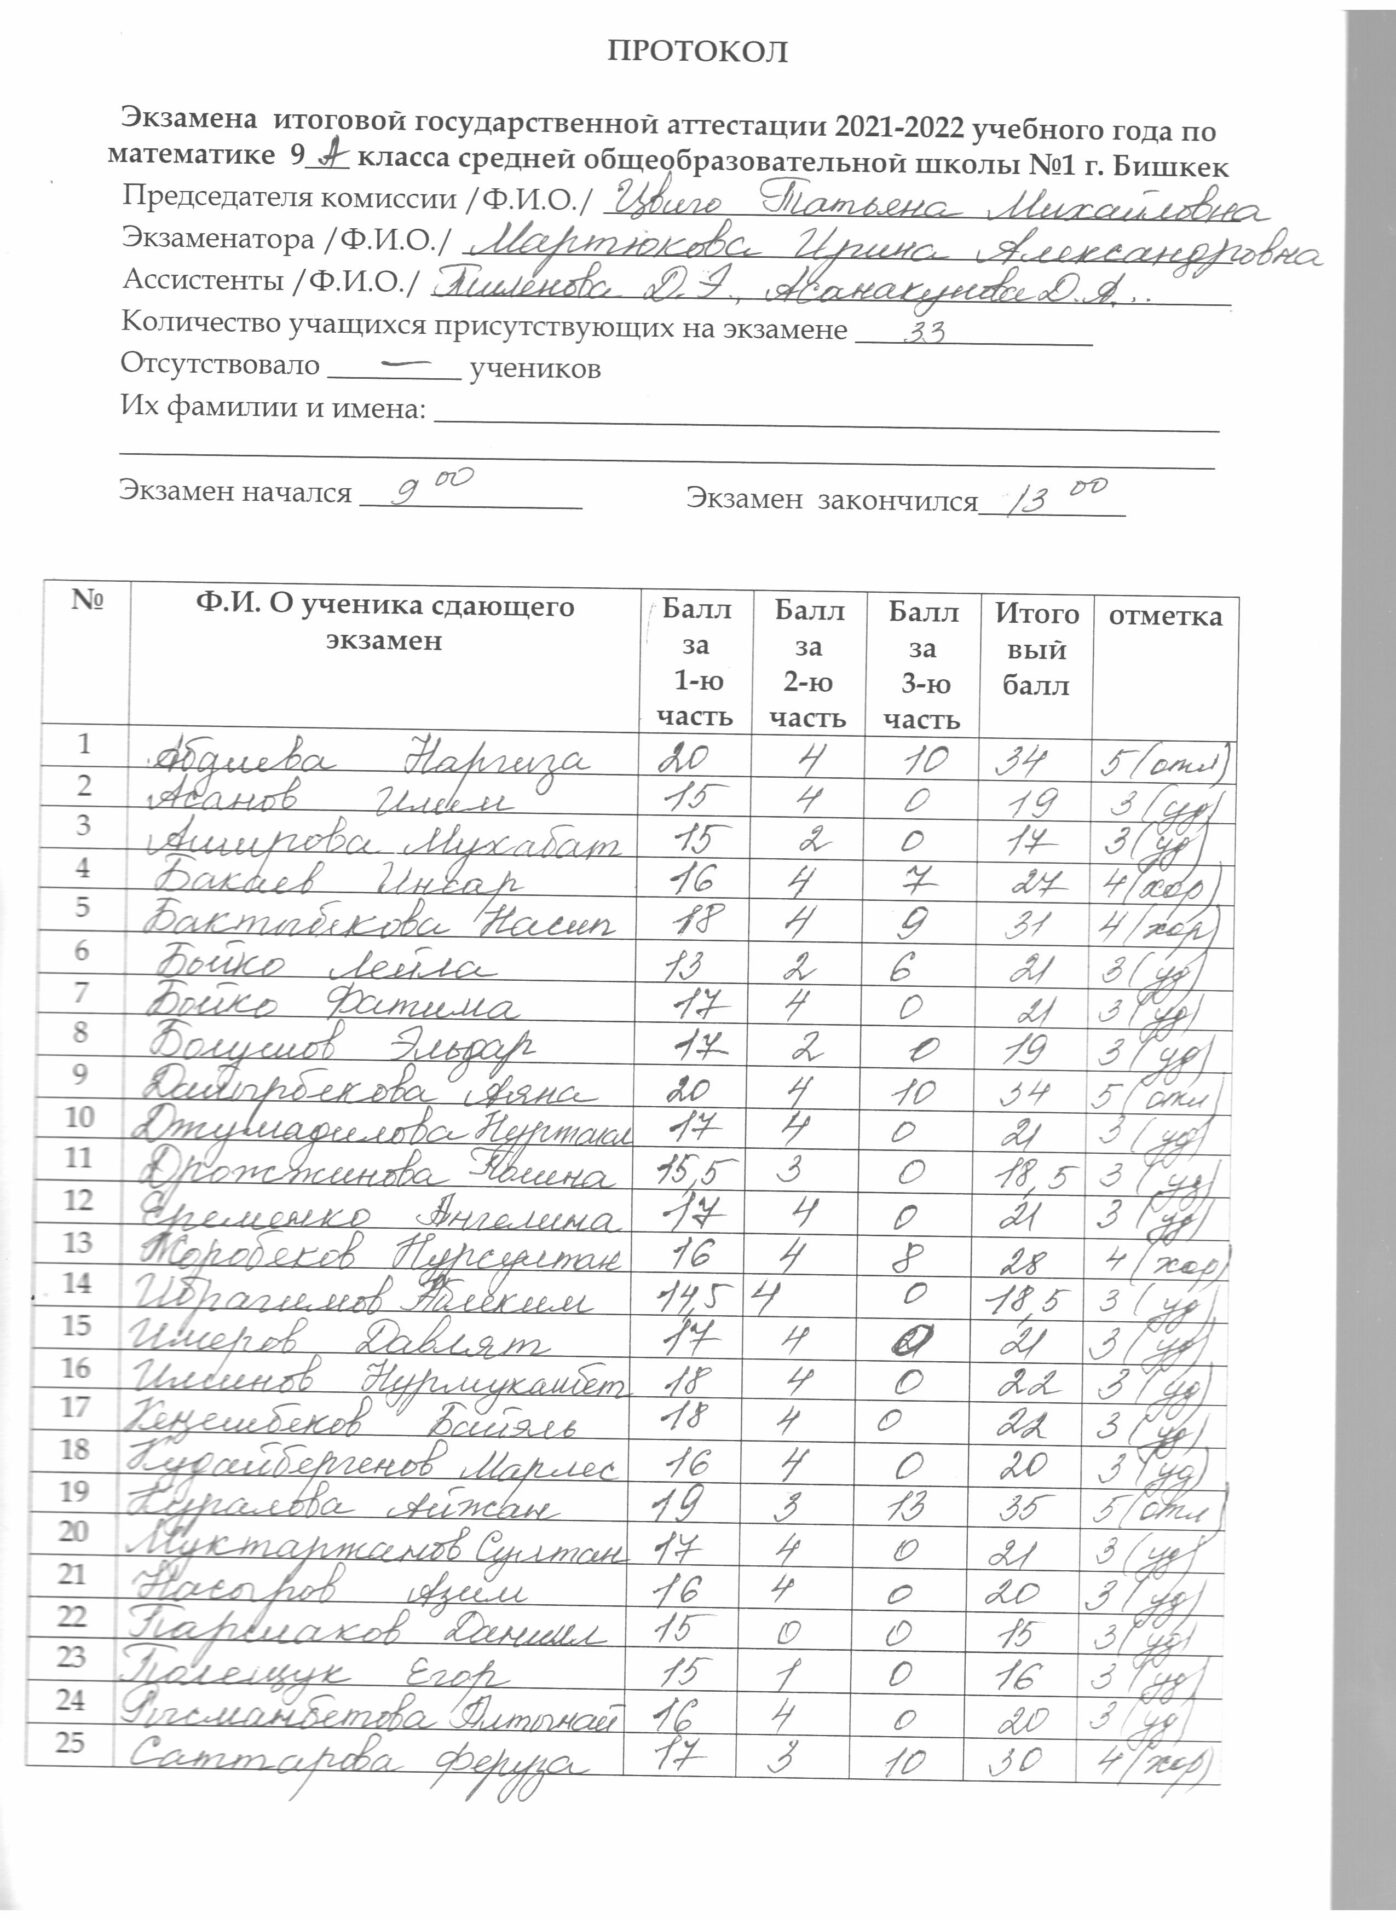 ПРОТОКОЛ
Экзамена итоговой государственной аттестации 2021-2022 учебного года по
математике 9 А класса средней общеобразовательной школы №1 г. Бишкек
Председателя комиссии /Ф.И.О./ Цвиго Татьяна Михайловна
Экзаменатора /Ф.И.О./ Мартюкова Ирина Александровна
Ассистенты /Ф.И.О./ Тиленова Д.Э., Асанакунова Д.А.
Количество учащихся присутствующих на экзамене 33
Отсутствовало — учеников
Их фамилии и имена:
Экзамен начался 9 00 Экзамен закончился 13 00
№ Ф.И. О ученика сдающего экзамен Балл за 1-ю часть Балл за 2-ю часть Балл за 3-ю часть Итоговый балл отметка
1 Абдиева Наргиза 20 4 10 34 5 (отл)
2 Асанов Илим 15 4 0 19 3 (уд)
3 Аширова Мухабат 15 2 0 17 3 (уд)
4 Бакаев Инсар 16 4 7 27 4 (хор)
5 Бактыбекова Насип 18 4 9 31 4 (хор)
6 Бойко Лейла 13 2 6 21 3 (уд)
7 Бойко Фатима 17 4 0 21 3 (уд)
8 Болушов Эльдар 17 2 0 19 3 (уд)
9 Дамырбекова Аяна 20 4 10 34 5 (отл)
10 Джумадилова 17 4 0 21 3 (уд)
11 Дрожжинова Полина 15,5 3 0 18,5 3 (уд)
12 Еременко Ангелина 17 4 0 21 3 (уд)
13 Жоробеков Нурсултан 16 4 8 28 4 (хор)
14 Ибрагимов 14,5 4 0 18,5 3 (уд)
15 Имеров Давлят 17 4 0 21 3 (уд)
16 Иминов Нурмухамбет 18 4 0 22 3 (уд)
17 Кеңешбеков Байэль 18 4 0 22 3 (уд)
18 Кудайбергенов Марлес 16 4 0 20 3 (уд)
19 Куралова Айжан 19 3 13 35 5 (отл)
20 Муктаржанов Султан 17 4 0 21 3 (уд)
21 Насыров Азим 16 4 0 20 3 (уд)
22 Пармаков Даниил 15 0 0 15 3 (уд)
23 Полещук Егор 15 1 0 16 3 (уд)
24 Рысманбетова Алтынай 16 4 0 20 3 (уд)
25 Саттарова Феруза 17 3 10 30 4 (хор)